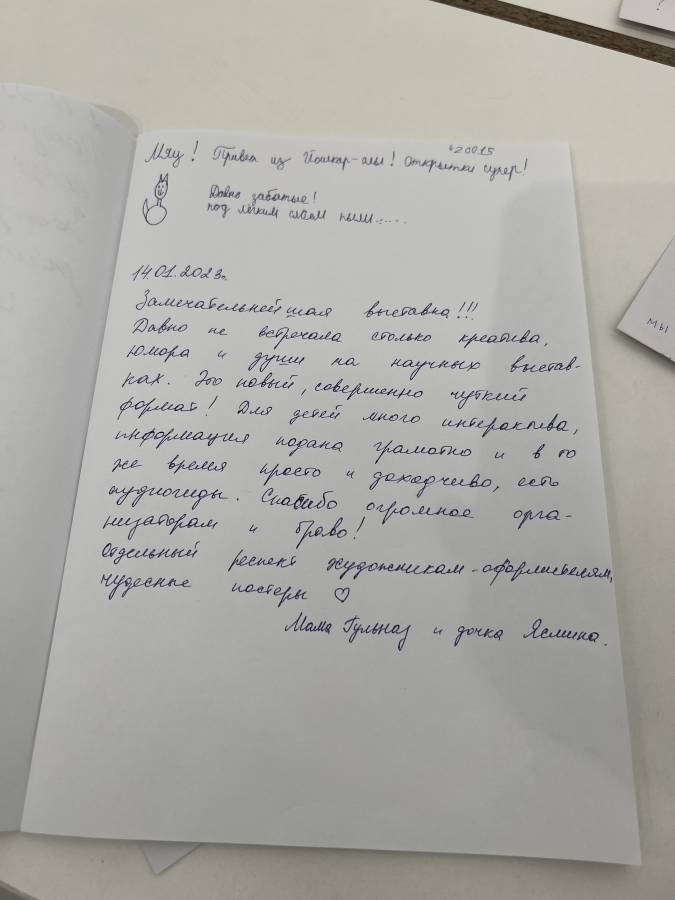 Мяу! Привет из Йошкар-олы! Открытки супер!
Давно забытые!
под лёгким слоем пыли.....
14.01.2023г.
Замечательнейшая выставка!!!
Давно не встречала столько креатива,
юмора и души на научных выстав-
ках. Это новый, совершенно чуткий
формат! Для детей много интерактива,
информация подана грамотно и в то
же время просто и доходчиво, есть
аудиогиды. Спасибо огромное орга-
низаторам и браво!
Отдельный респект художникам-оформителям,
чудесные постеры ♡
Мама Гульназ и дочка Ясмина.
?
мы